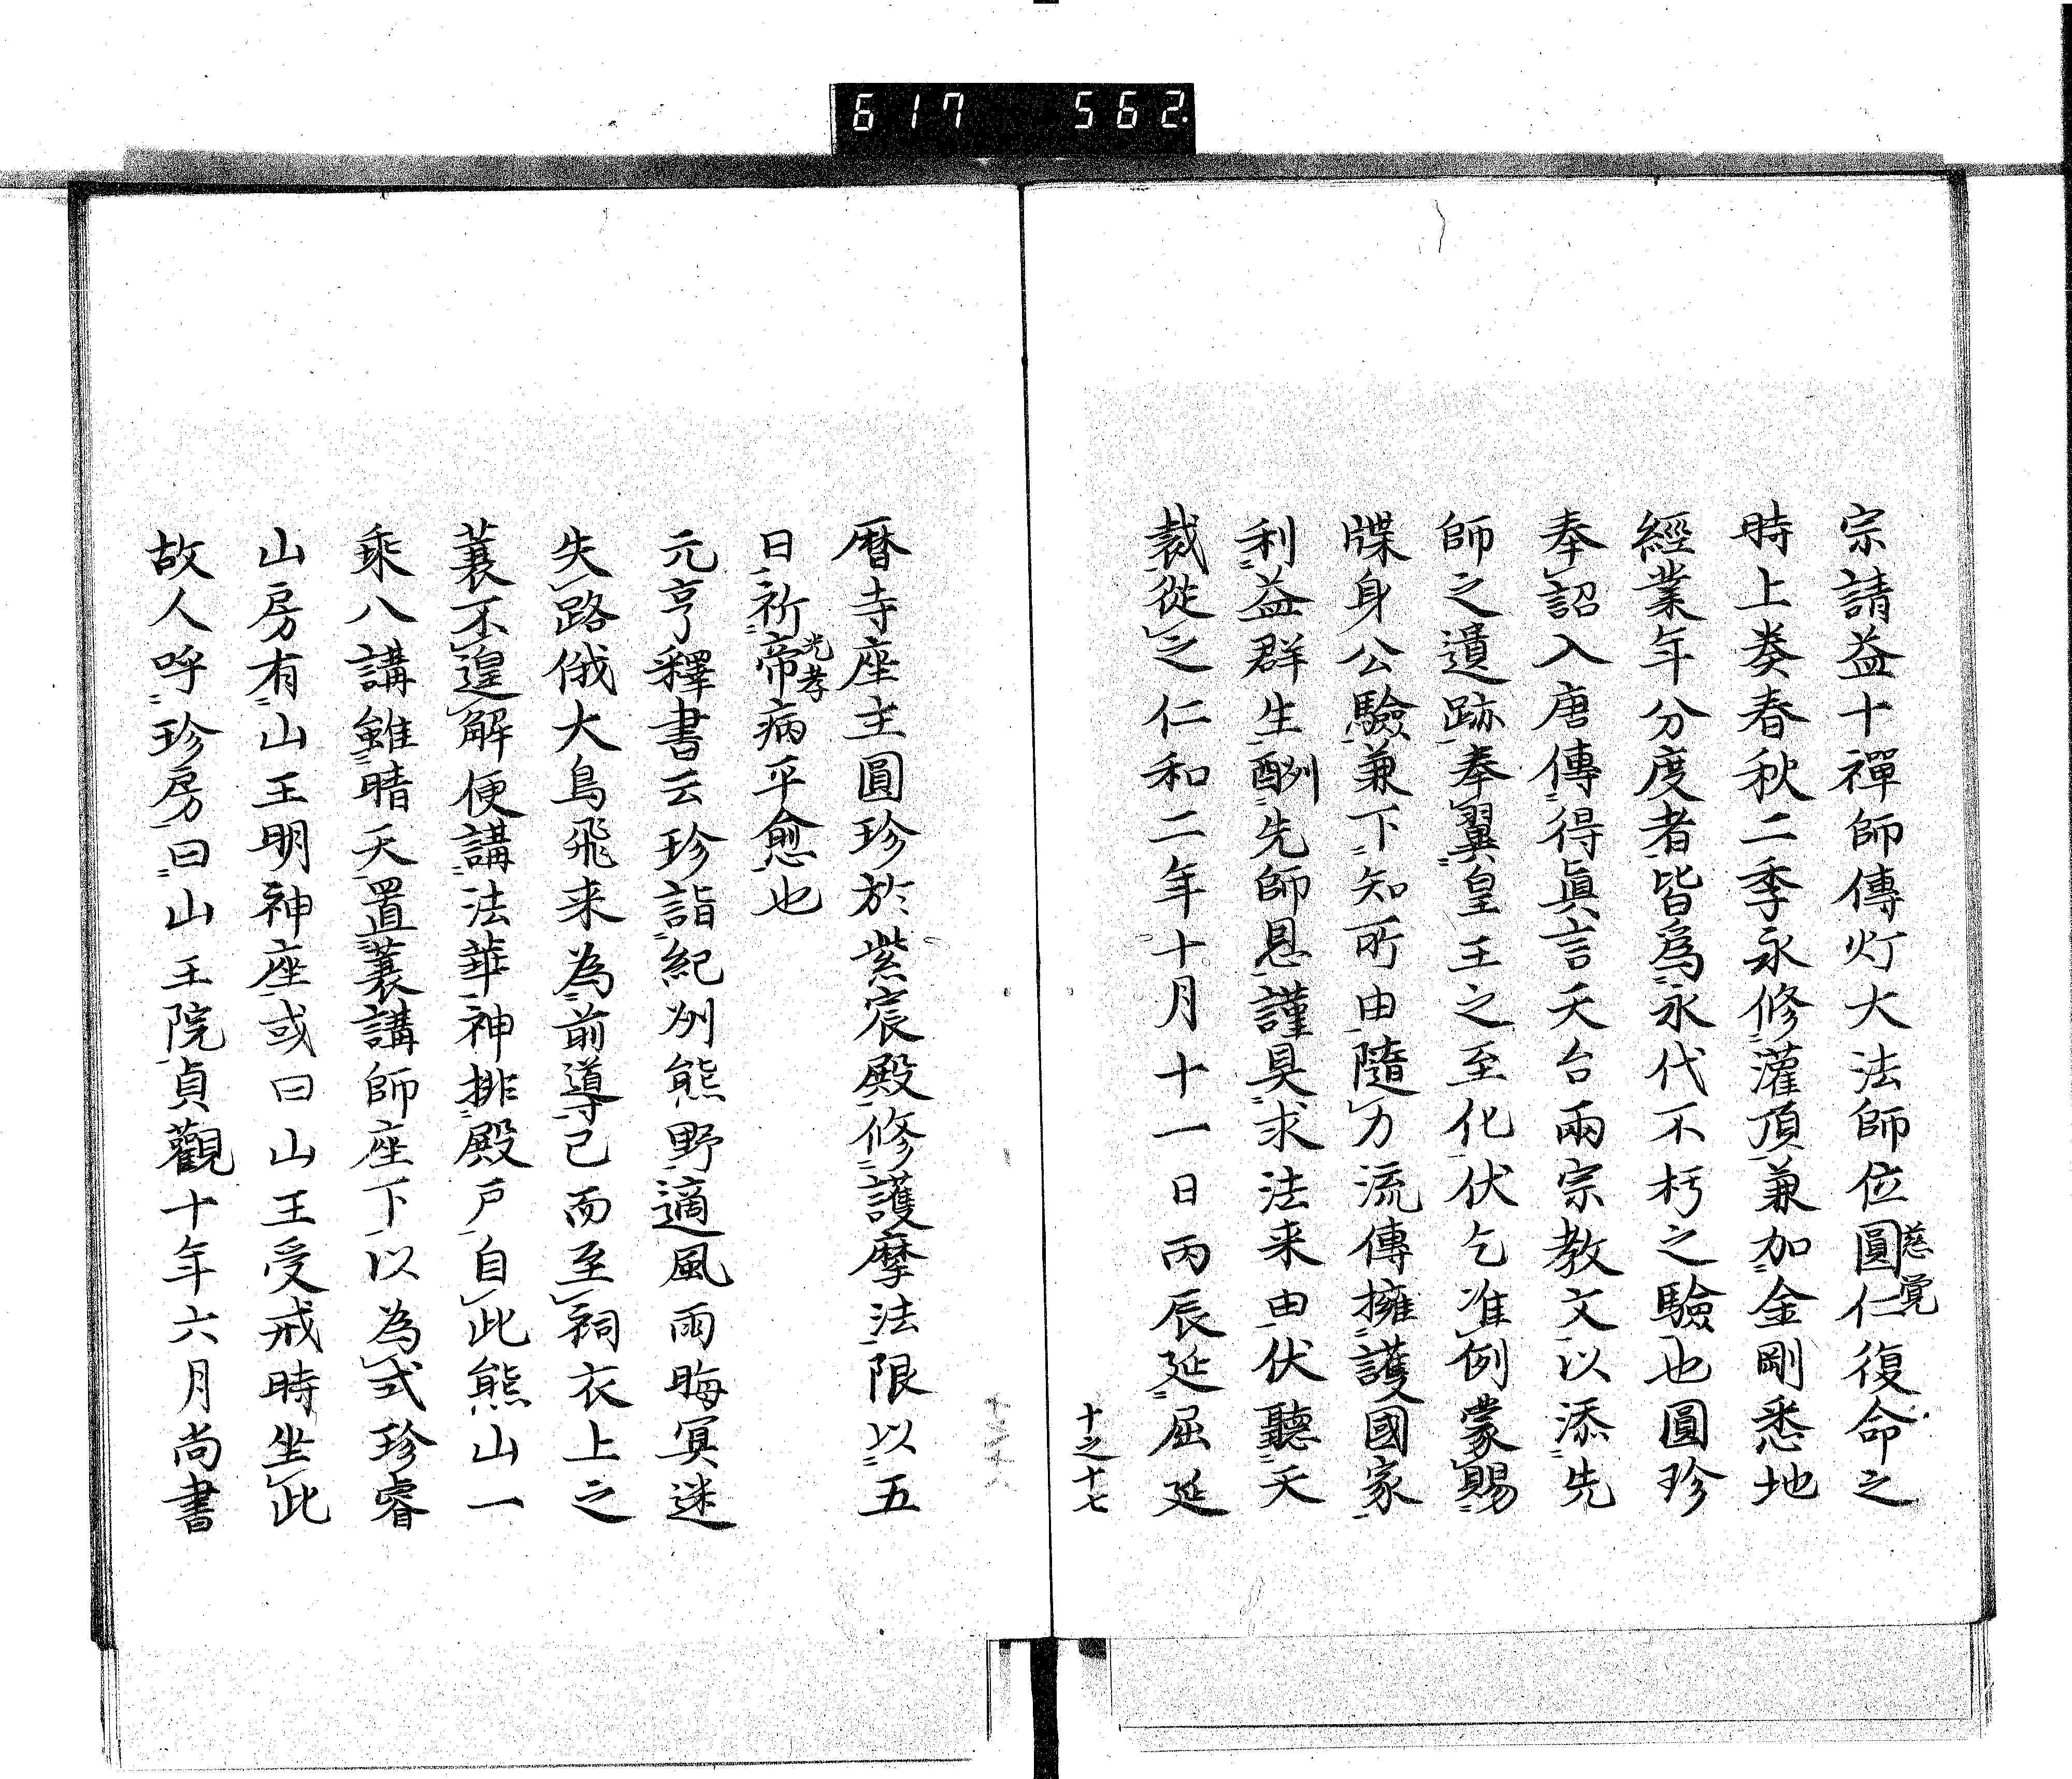 617 562.
宗請益十禪師傳灯大法師位圓仁復命之
慈覚
時上奏春秋二季永修灌頂兼加金剛悉地
經業年分度者皆爲永代不朽之驗也圓珍
奉詔入唐傳得眞言天台兩宗教文以添先
師之遺跡奉翼皇王之至化伏乞准例蒙賜
牒身公驗兼下知所由隨力流傳擁護國家
利益群生酬先師恩謹具求法来由伏聽天
裁從之仁和二年十月十一日丙辰延屈延
十之十七
暦寺座主圓珍於紫宸殿修護摩法限以五
日祈帝病平愈也
光孝
元亨釋書云珍詣紀州熊野適風雨晦冥迷
失路俄大鳥飛来為前導已而至祠衣上之
蓑不遑解便講法華神排殿戸自此熊山一
乘八講雖晴天置蓑講師座下以為式珍睿
山房有山王明神座或曰山王受戒時坐此
故人呼珍房曰山王院貞觀十年六月尚書